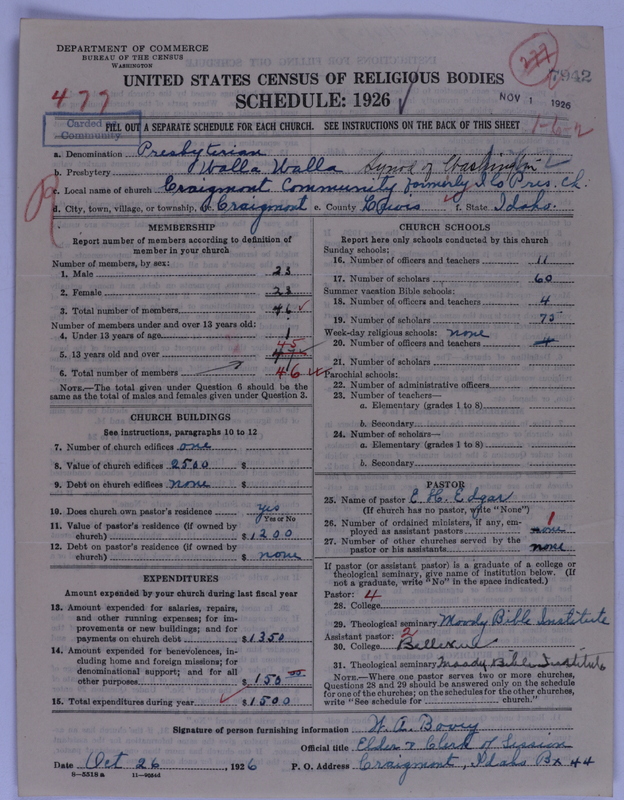 DEPARTMENT OF COMMERCE
BUREAU OF THE CENSUS
WASHINGTON
277
7942
UNITED STATES CENSUS OF RELIGIOUS BODIES
SCHEDULE: 1926
477
NOV 1 1926
Carded
Community
FILL OUT A SEPARATE SCHEDULE FOR EACH CHURCH. SEE INSTRUCTIONS ON THE BACK OF THIS SHEET
1-6-2
a. Denomination Presbyterian
b. Presbytery Walla Walla Synod of Washington
c. Local name of church Craigmont Community formerly Ilo Pres. Ch.
d. City, town, village, or township, etc. Craigmont e. County Lewis f. State Idaho.
MEMBERSHIP
Report number of members according to definition of
member in your church
Number of members, by sex:
1. Male 23
2. Female 23
3. Total number of members 46
Number of members under and over 13 years old:
4. Under 13 years of age 1
45
5. 13 years old and over
6. Total number of members 46
NOTE.—The total given under Question 6 should be the
same as the total of males and females given under Question 3.
CHURCH BUILDINGS
See instructions, paragraphs 10 to 12
7. Number of church edifices one
8. Value of church edifices 2500 $
9. Debt on church edifices none $
10. Does church own pastor's residence yes
Yes or No
11. Value of pastor's residence (if owned by
church) $ 1200
12. Debt on pastor's residence (if owned by
church) $ none
EXPENDITURES
Amount expended by your church during last fiscal year
13. Amount expended for salaries, repairs,
and other running expenses; for im-
provements or new buildings; and for
payments on church debt $ 1350
14. Amount expended for benevolences, in-
cluding home and foreign missions; for
denominational support; and for all
other purposes $ 150 00
15. Total expenditures during year $ 1500
CHURCH SCHOOLS
Report here only schools conducted by this church
Sunday schools:
16. Number of officers and teachers 11
17. Number of scholars 60
Summer vacation Bible schools:
18. Number of officers and teachers 4
19. Number of scholars 75
Week-day religious schools: none
20. Number of officers and teachers 4
21. Number of scholars
Parochial schools:
22. Number of administrative officers
23. Number of teachers—
a. Elementary (grades 1 to 8)
b. Secondary
24. Number of scholars—
a. Elementary (grades 1 to 8)
b. Secondary
PASTOR
25. Name of pastor E. H. Edgar
(If church has no pastor, write "None")
26. Number of ordained ministers, if any, em-
ployed as assistant pastors none 1
27. Number of other churches served by the
pastor or his assistants none
If pastor (or assistant pastor) is a graduate of a college or
theological seminary, give name of institution below. (If
not a graduate, write "No" in the space indicated.)
Pastor: 4
28. College
29. Theological seminary Moody Bible Institute
Assistant pastor: 2
30. College Bellevue
31. Theological seminary Moody Bible Institute
NOTE.—Where one pastor serves two or more churches,
Questions 28 and 29 should be answered only on the schedule
for one of the churches; on the schedules for the other churches,
write "See schedule for church."
Signature of person furnishing information W. A. Bovey
Official title Elder & Clerk of Session
Date Oct 26, 1926 P. O. Address Craigmont, Idaho Bx 44
8—5518 a 11—9034d